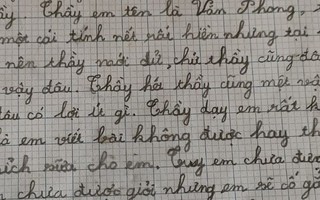 Thầy em tên là Văn Phong,
một cái tính nết rất hiền nhưng tại
nên thầy mới dữ, chứ thầy cũng đâ
vậy đâu. Thầy hét thầy cũng mệt và
có lợi ít gì. Thầy dạy em rất
em viết bài không được hay th
sửa cho em. Tuy em chưa đượ
chưa được giỏi nhưng em sẽ cố gắ